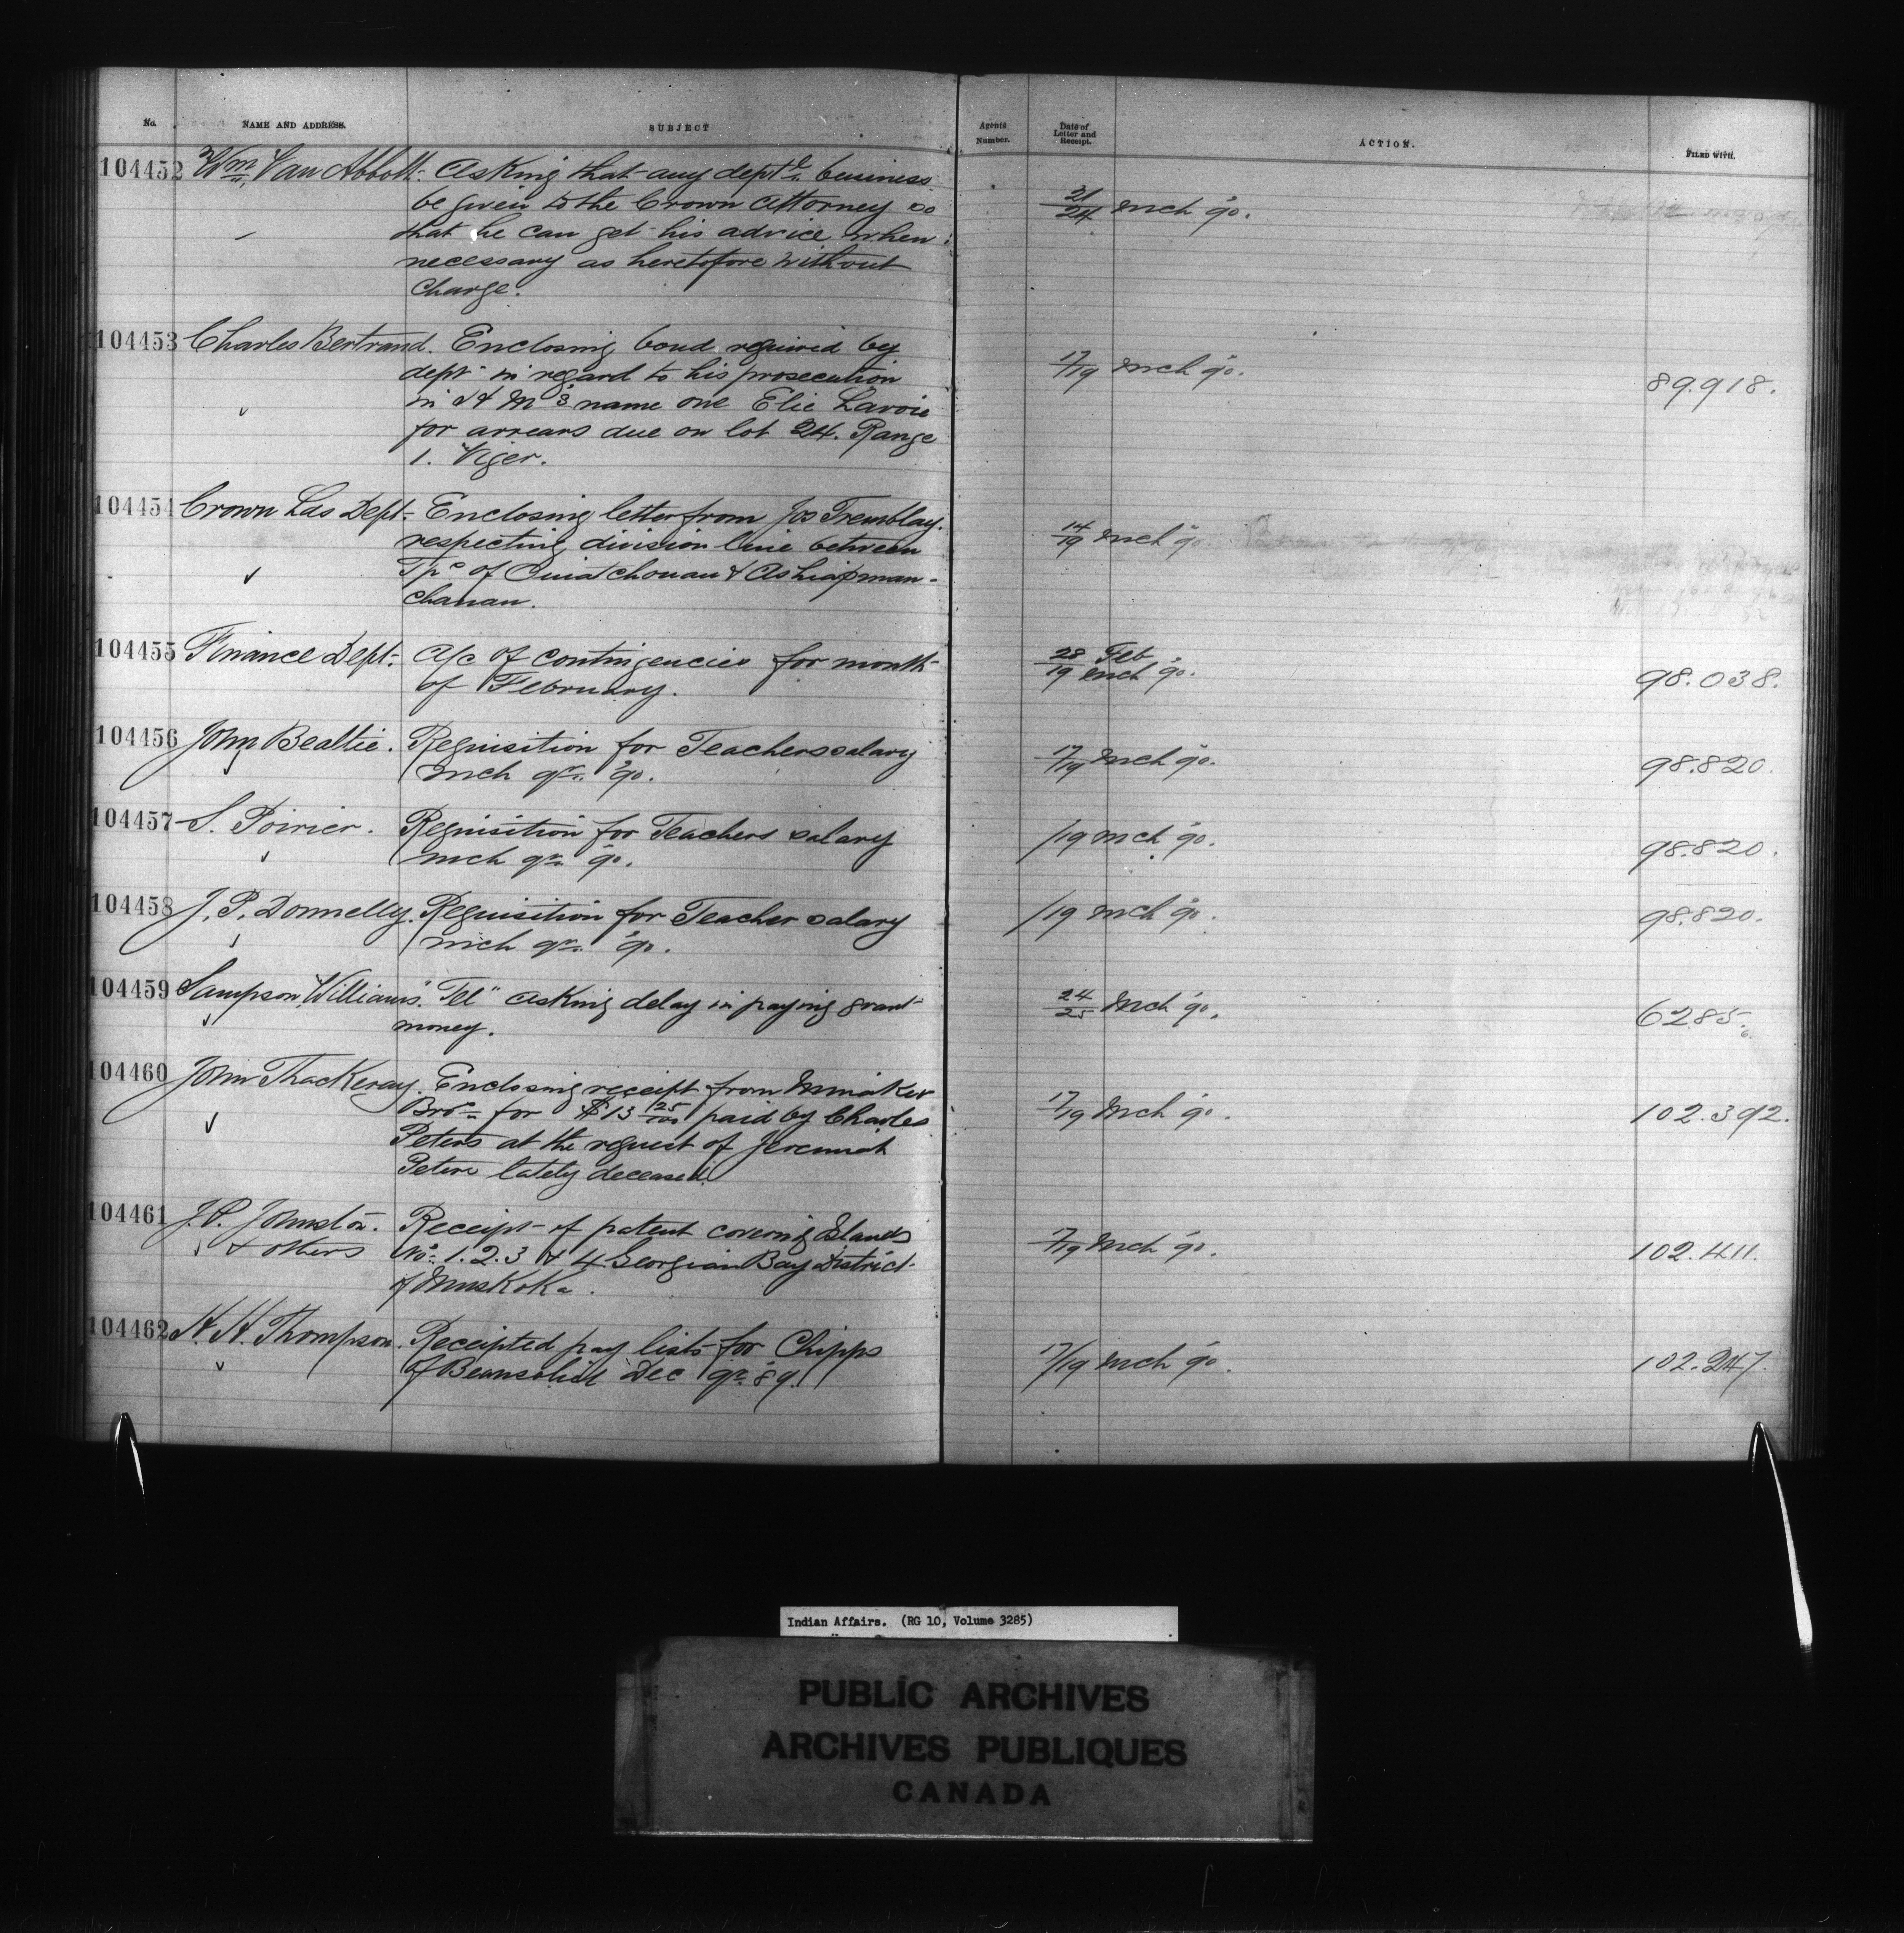 No. NAME AND ADDRESS. SUBJECT Agents Number. Date of Letter and Receipt. ACTION. FILED WITH.
104452 Wm Van Abbott. Asking that any dept'l business 21/24 Mch '90.
be given to the Crown Attorney so
that he can get his advice when
necessary as heretofore without
charge.
104453 Charles Bertrand. Enclosing bond required by 17/19 Mch '90. 89.918.
dept in regard to his prosecution
in H M's name one Elie Lavoie
for arrears due on lot 24. Range
1. Viger.
104454 Crown Lds Dept. Enclosing letter from Jos Tremblay. 14/19 Mch '90.
respecting division line between
Tps of Ouiatchouan & Ashuapmou-
chouan.
104455 Finance Dept. A/c of contingencies for month 28 Feb/19 Mch '90. 98.038.
of February.
104456 John Beattie. Requisition for Teachers salary 17/19 Mch '90. 98.820.
Mch qr. '90.
104457 S. Poirier. Requisition for Teachers salary /19 Mch '90. 98.820.
Mch qr. '90.
104458 J. P. Donnelly. Requisition for Teacher salary /19 Mch '90. 98.820.
Mch qr. '90.
104459 Sampson Williams. "Tel" asking delay in paying grant 24/25 Mch '90. 6285.
money.
104460 John Thackeray. Enclosing receipt from 17/19 Mch '90. 102.392.
Bros for $13 25/100 paid by Charles
Peters at the request of Jeremiah
Peters lately deceased.
104461 J. P. Johnston. Receipt of patent covering Islands 17/19 Mch '90. 102.411.
& others Nos 1. 2. 3 & 4 Georgian Bay District
of Muskoka.
104462 H. H. Thompson. Receipted pay lists for Chipps 17/19 Mch '90. 102.247.
of Beausoliel Dec qr. 89.
Indian Affairs. (RG 10, Volume 3285)
PUBLIC ARCHIVES
ARCHIVES PUBLIQUES
CANADA